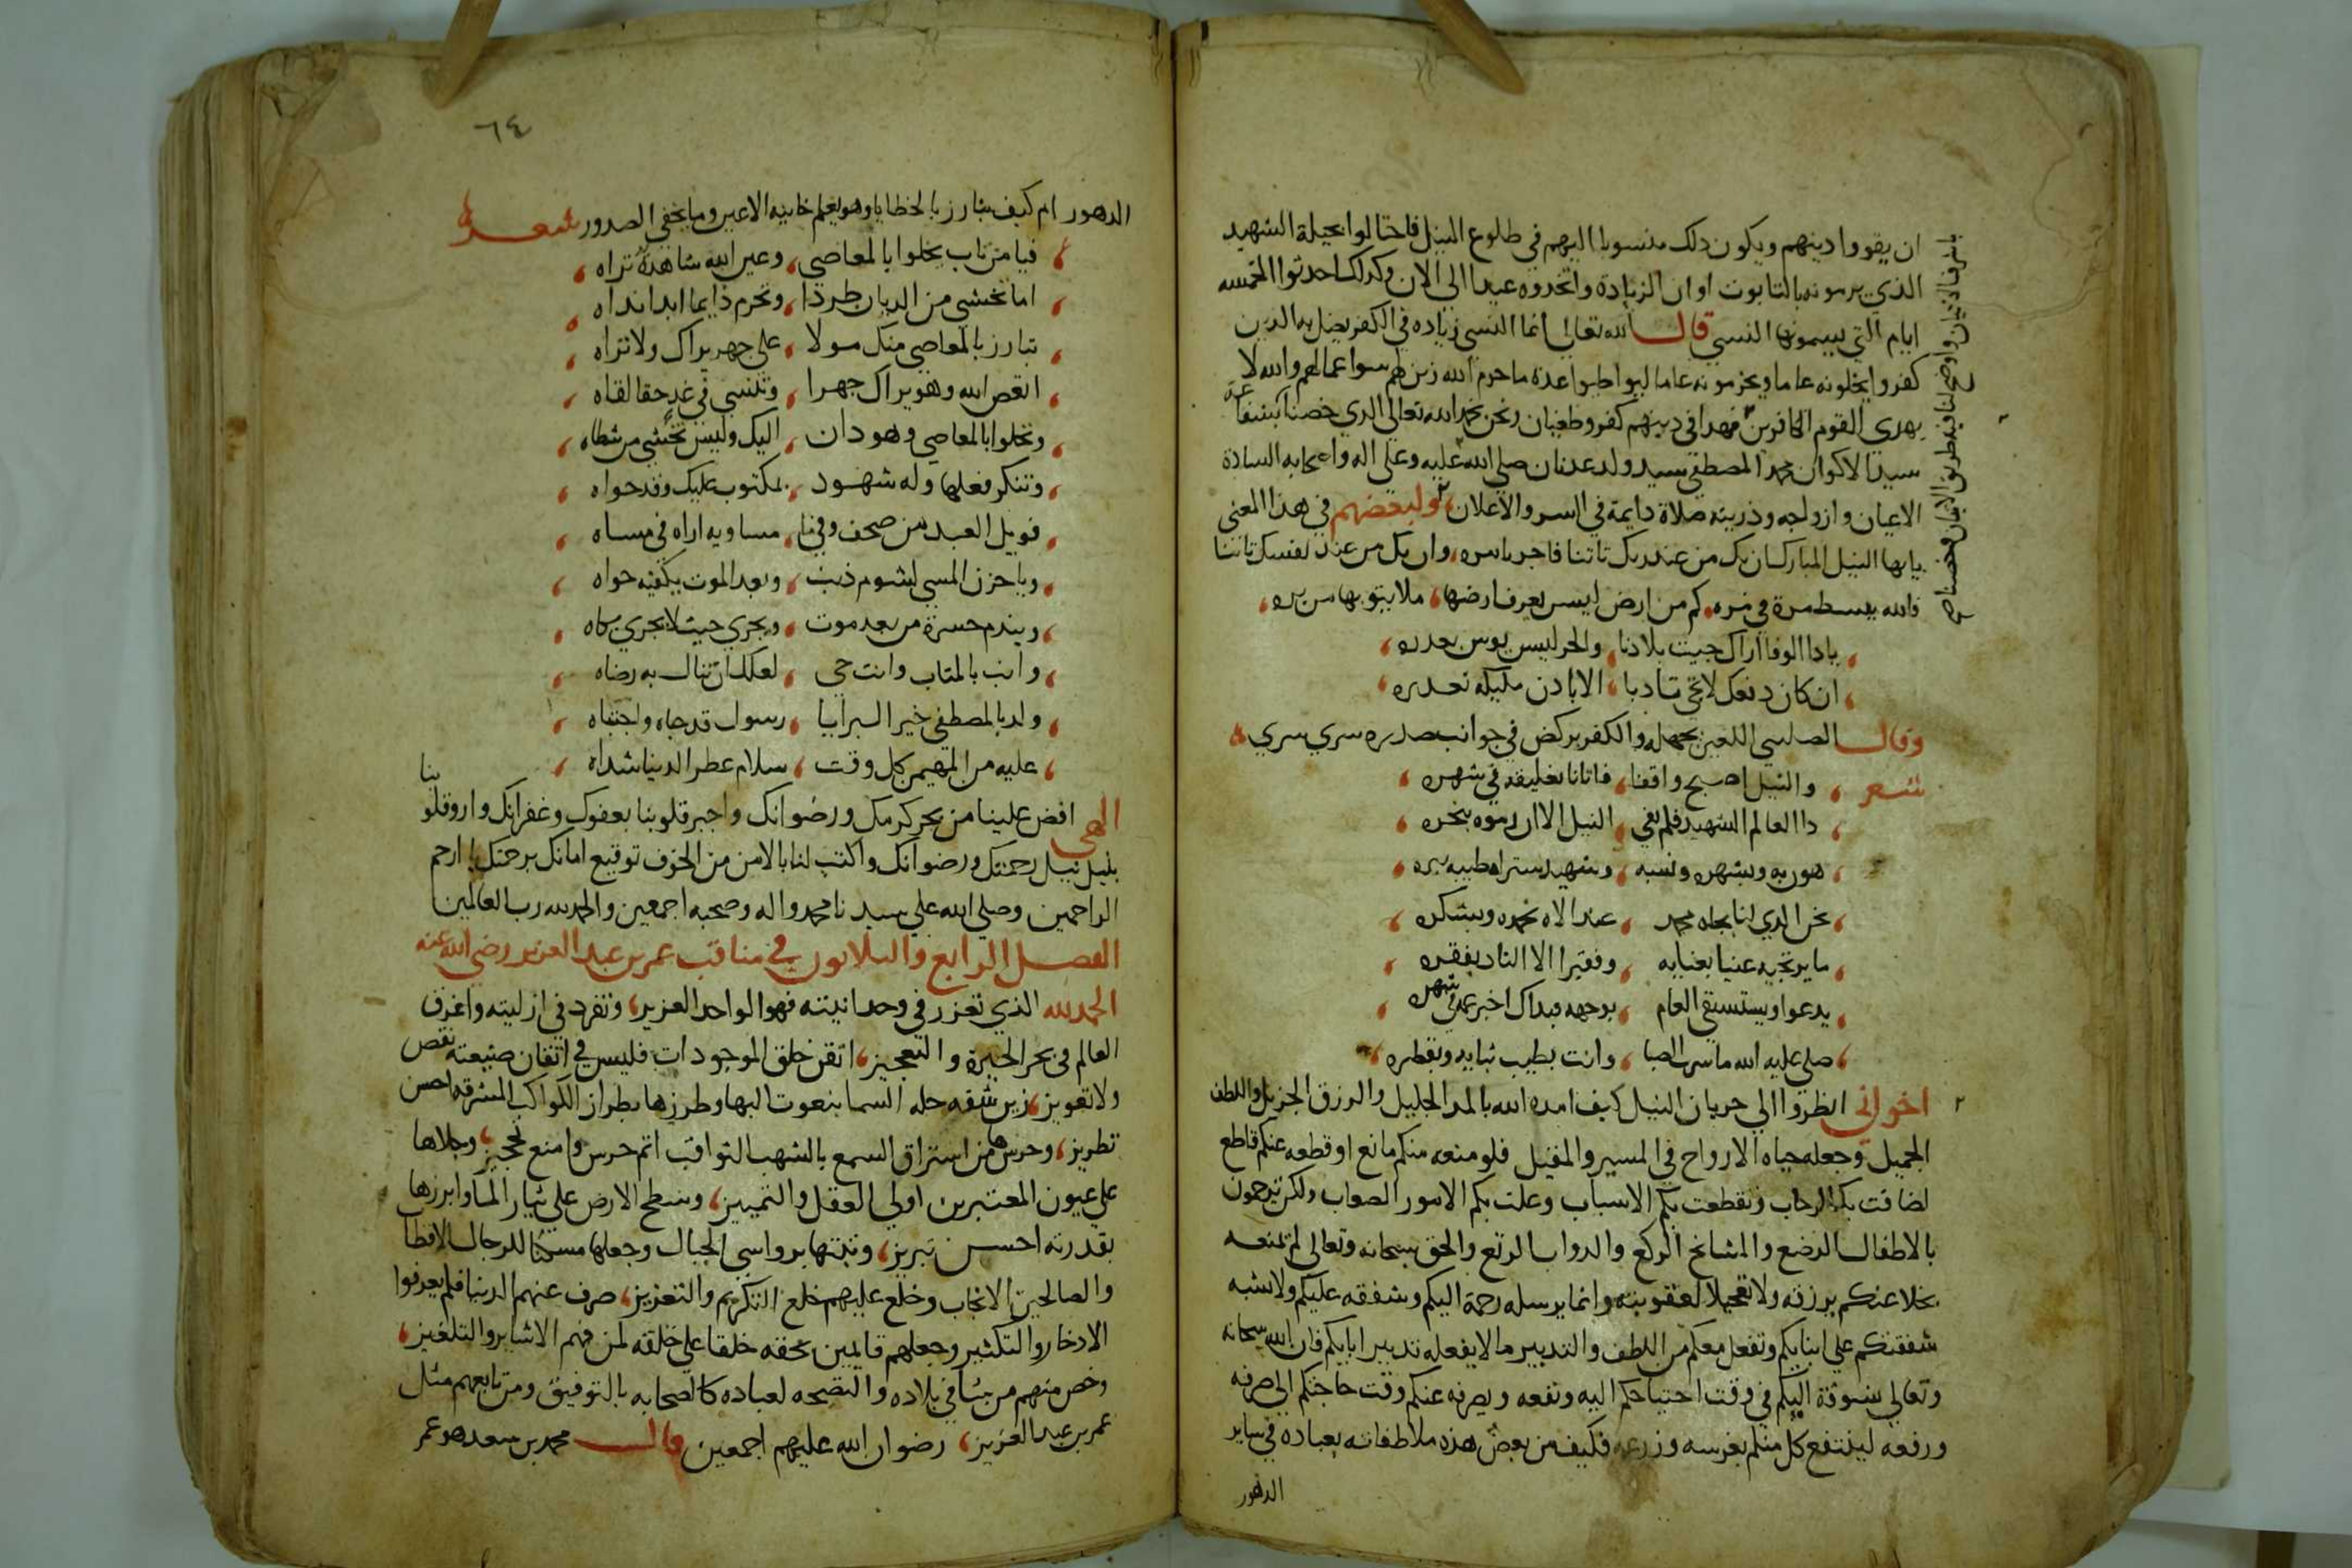 ان يقووا دينهم ويكون ذلك منسوبا اليهم في طلوع النيل فاحتالوا بحيلة الشهيد
الذي يرمونه بالتابوت اوان الزيادة واتخذوه عيدا الى الان وكذلك احدثوا الخمسه
ايام التي يسمونها النسي قال الله تعالى انما النسي زياده في الكفر يضل به الذين
كفروا يحلونه عاما ويحرمونه عاما ليواطوا عدة ما حرم الله زين لهم سوا عمالهم والله لا
يهدي القوم الكافرين فهذا في دينهم كفر وطغيان ونحن بحمد الله تعالى الذي خصنا بشفاعة
سيد الاكوان محمد المصطفى سيد ولد عدنان صلى الله عليه وعلى اله واصحابه السادة
الاعيان وازواجه وذريته صلاة دايمة في السر والاعلان ولبعضهم في هذا المعنى
يايها النيل المبارك ان يك من عند ربك تاتنا فاجر بامره وان يك من عند نفسك تاتنا
فالله يبسط مرة في مره كم من ارض ليس يعرف ارضها
ياذا الوفا اراك جيت بلادنا والحر ليس
ان كان دفعك لا تجي متادبا الا باذن مليكه
وقال الصليبي اللعين بجهله والكفر يركض في جوانب صدره سري سري
شعر والنيل اصبح واقفا فاتانا في شهره
ذا العالم الشهيد فلم يفي النيل الا ان رموه بنحره
هون به وبشهره ونسبه وشهيد
نحن الذي لنا بجاه محمد عند الاله نحمده ونشكره
ما يرتجيه غنيا بغنايه وفقيرا الا بفقره
يدعوا ويستسقي الغام بوجهه
صلى عليه الله ما سرت الصبا وانت بطيب
اخواني انظروا الى جريان النيل كيف امده الله بالمد الجليل والرزق الجزيل واللطف
الجميل وجعله حياه الارواح في المسير والمقيل فلو منعه منكم مانع او قطعه عنكم قاطع
لضاقت بكم الرحاب وتقطعت بكم الاسباب وعلت بكم الامور الصعاب ولكن ترحمون
بالاطفال الرضع والمشايخ الركع والدواب الرتع والحق سبحانه وتعالى لم يمنعه
بخلا عنكم برزقه ولا تعجيلا لعقوبته وانما يرسله رحمة اليكم وشفقه عليكم ولا تشبه
شفقتكم على ابنايكم وتفعل معكم من اللطف والتدبير ما لا يفعله تدبير ابايكم فان الله سبحانه
وتعالى يسوقه اليكم في وقت احتياجكم اليه ونفعه ويصرفه عنكم وقت حاجتكم الى صرفه
ورفعه لينتفع كل منكم بغرسه وزرعه فكيف من بعض هذه ملاطفاته بعباده في ساير
الدهور
٦٤
الدهور ام كيف يبارز بالخطايا وهو يعلم خاينه الاعين وما تخفي الصدور شعر
فيا من تاب يخلوا بالمعاصي وعين الله شاهدة تراه
اما تخشى من الديان طردا وتحرم دايما ابدا نداه
تبارز بالمعاصي منك مولا على جهر يراك ولا تراه
اتعص الله وهو يراك جهرا وتنسى في غد حقا لقاه
وتخلوا بالمعاصي وهو دان اليك وليس تخشى من سطاه
وتنكر فعلها وله شهود بمكتوب عليك وقد حواه
فويل العبد من صحف وفيها مساويه اذا وافى مساه
وياحزن المسي لشوم ذنب وبعد الموت يكفيه جواه
ويندم حسرة من بعد موت ويجري حيث لا يجري بكاه
وانب بالمتاب وانت حي لعلك ان تنال به رضاه
ولذ بالمصطفى خير البرايا رسول قد حباه واجتباه
عليه من المهيمن كل وقت سلام عطر الدنيا شذاه
الهي افض علينا من بحر كرمك ورضوانك واجبر قلوبنا بعفوك وغفرانك واروقلوبنا
بنيل نيل رحمتك ورضوانك واكتب لنا بالامن من الخوف توقيع امانك برحمتك يا ارحم
الراحمين وصلى الله على سيدنا محمد واله وصحبه اجمعين والحمد لله رب العالمين
الفصل الرابع والثلاثون في مناقب عمر بن عبد العزيز رضي الله عنه
الحمد لله الذي تعزز في وحدانيته فهو الواحد العزيز وتفرد في ازليته واغرق
العالم في بحر الحيرة والتعجيز اتقن خلق الموجودات فليس في اتقان صنعته نقص
ولا تعويز زين شقه حله السما بنعوت البها وطرزها بطراز الكواكب المشرقه احسن
تطريز وحرسها من استراق السمع بالشهب الثواقب اتم حرس وامنع تحجيز وجلاها
على عيون المعتبرين اولي العقل والتمييز وسطح الارض على تيار الما وابرزها
بقدرته احسن تبريز وثبتها برواسي الجبال وجعلها مسكنا للرجال الاقطا
والصالحين الانجاب وخلع عليهم خلع التكريم والتعزيز صرف عنهم الدنيا فلم يعرفوا
الادخار والتكثير وجعلهم قايمين بحقه خلقا على خلقه لمن فهم الاشاير والتلغيز
وخص منهم من يشا في بلاده والنصحه لعباده كالصحابه بالتوفيق ومن تابعهم مثل
عمر بن عبد العزيز رضوان الله عليهم اجمعين قال محمد بن سعد هو عمر